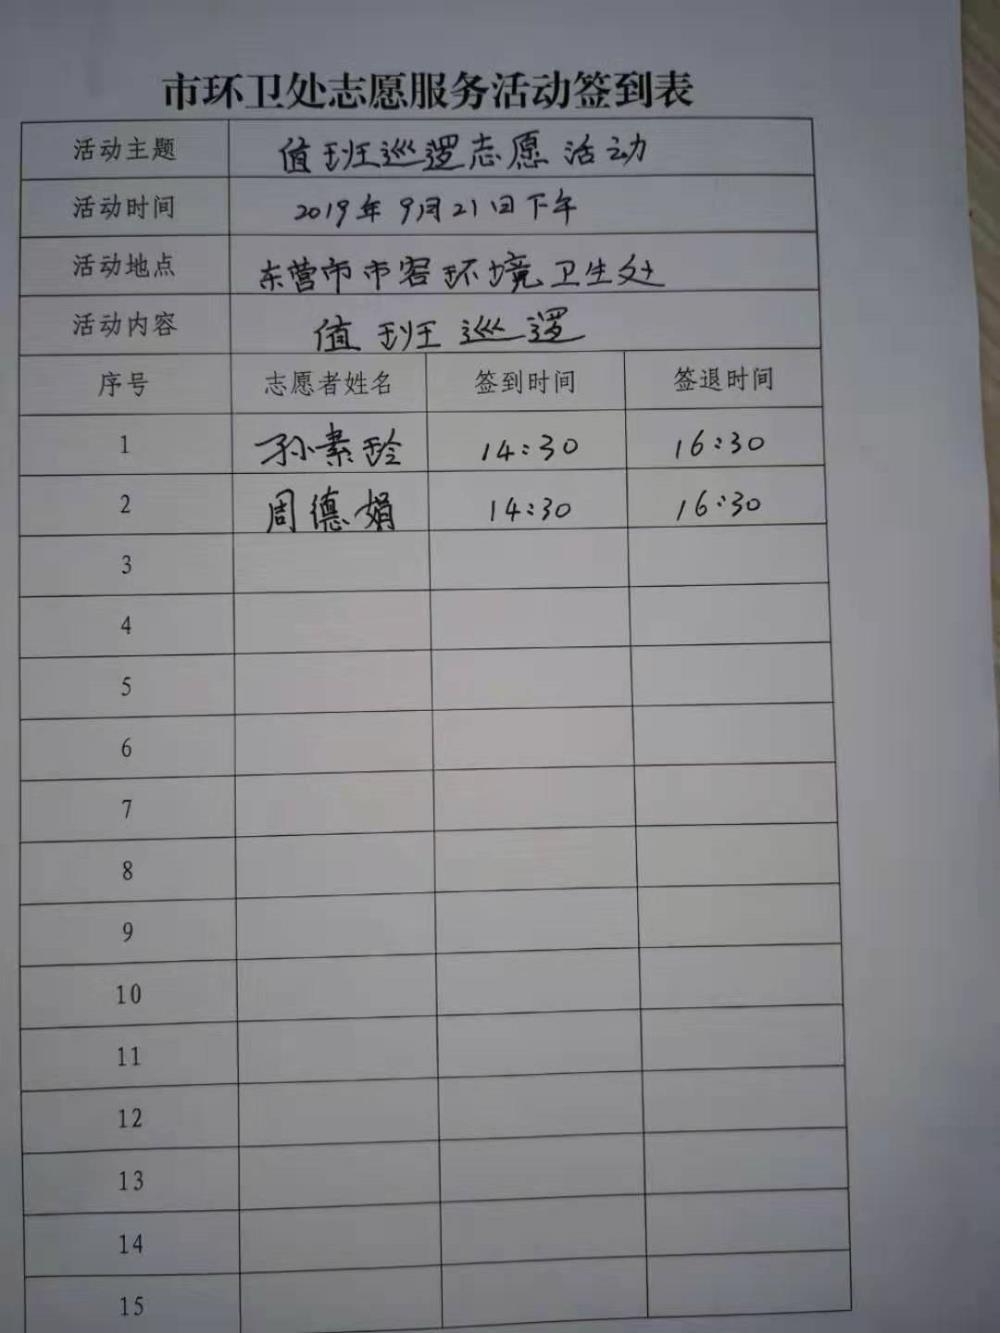 市环卫处志愿服务活动签到表
活动主题 值班巡逻志愿活动
活动时间 2019年9月21日下午
活动地点 东营市市容环境卫生处
活动内容 值班巡逻
序号 志愿者姓名 签到时间 签退时间
1 孙素玲 14:30 16:30
2 周德娟 14:30 16:30
3
4
5
6
7
8
9
10
11
12
13
14
15